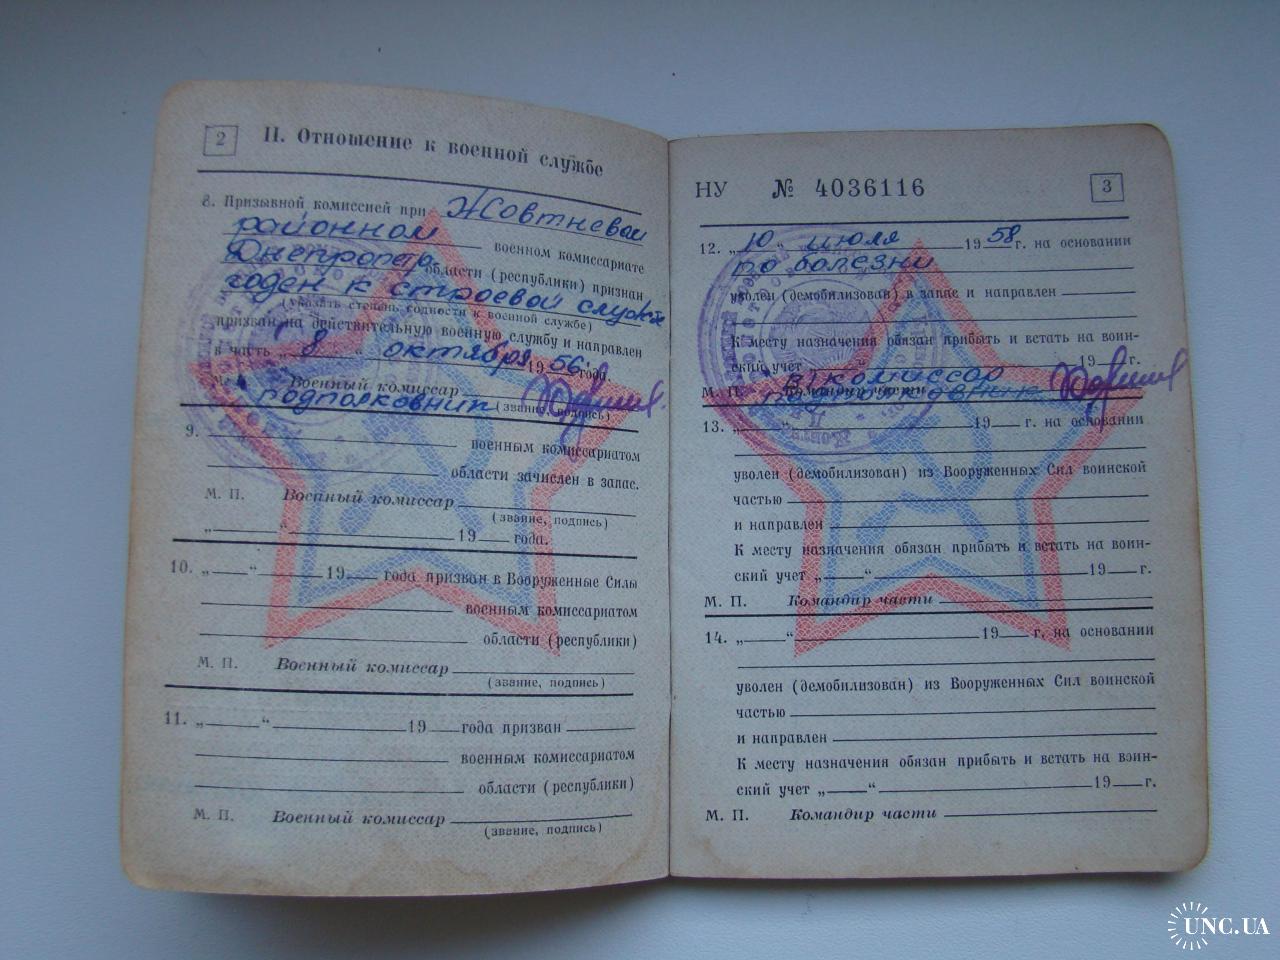 2 II. Отношение к военной службе
8. Призывной комиссией при Жовтневом
районном военном комиссариате
Днепропетр. области (республики) признан
годен к строевой службе
(указать степень годности к военной службе)
призван на действительную военную службу и направлен
в часть „ 8 “ октября 19 56 года.
М. П. Военный комиссар
подполковник (звание, подпись)
9. военным комиссариатом
области зачислен в запас.
М. П. Военный комиссар
(звание, подпись)
„ “ 19 года.
10. „ “ 19 года призван в Вооруженные Силы
военным комиссариатом
области (республики)
М. П. Военный комиссар
(звание, подпись)
11. „ “ 19 года призван
военным комиссариатом
области (республики)
М. П. Военный комиссар
(звание, подпись)
НУ № 4036116 3
12. „ 10 “ июля 19 58 г. на основании
по болезни
уволен (демобилизован) в запас и направлен
К месту назначения обязан прибыть и встать на воин-
ский учет „ “ 19 г.
в/комиссар
М. П. Командир части
подполковник
13. „ “ 19 г. на основании
уволен (демобилизован) из Вооруженных Сил воинской
частью
и направлен
К месту назначения обязан прибыть и встать на воин-
ский учет „ “ 19 г.
М. П. Командир части
14. „ “ 19 г. на основании
уволен (демобилизован) из Вооруженных Сил воинской
частью
и направлен
К месту назначения обязан прибыть и встать на воин-
ский учет „ “ 19 г.
М. П. Командир части
UNC.UA